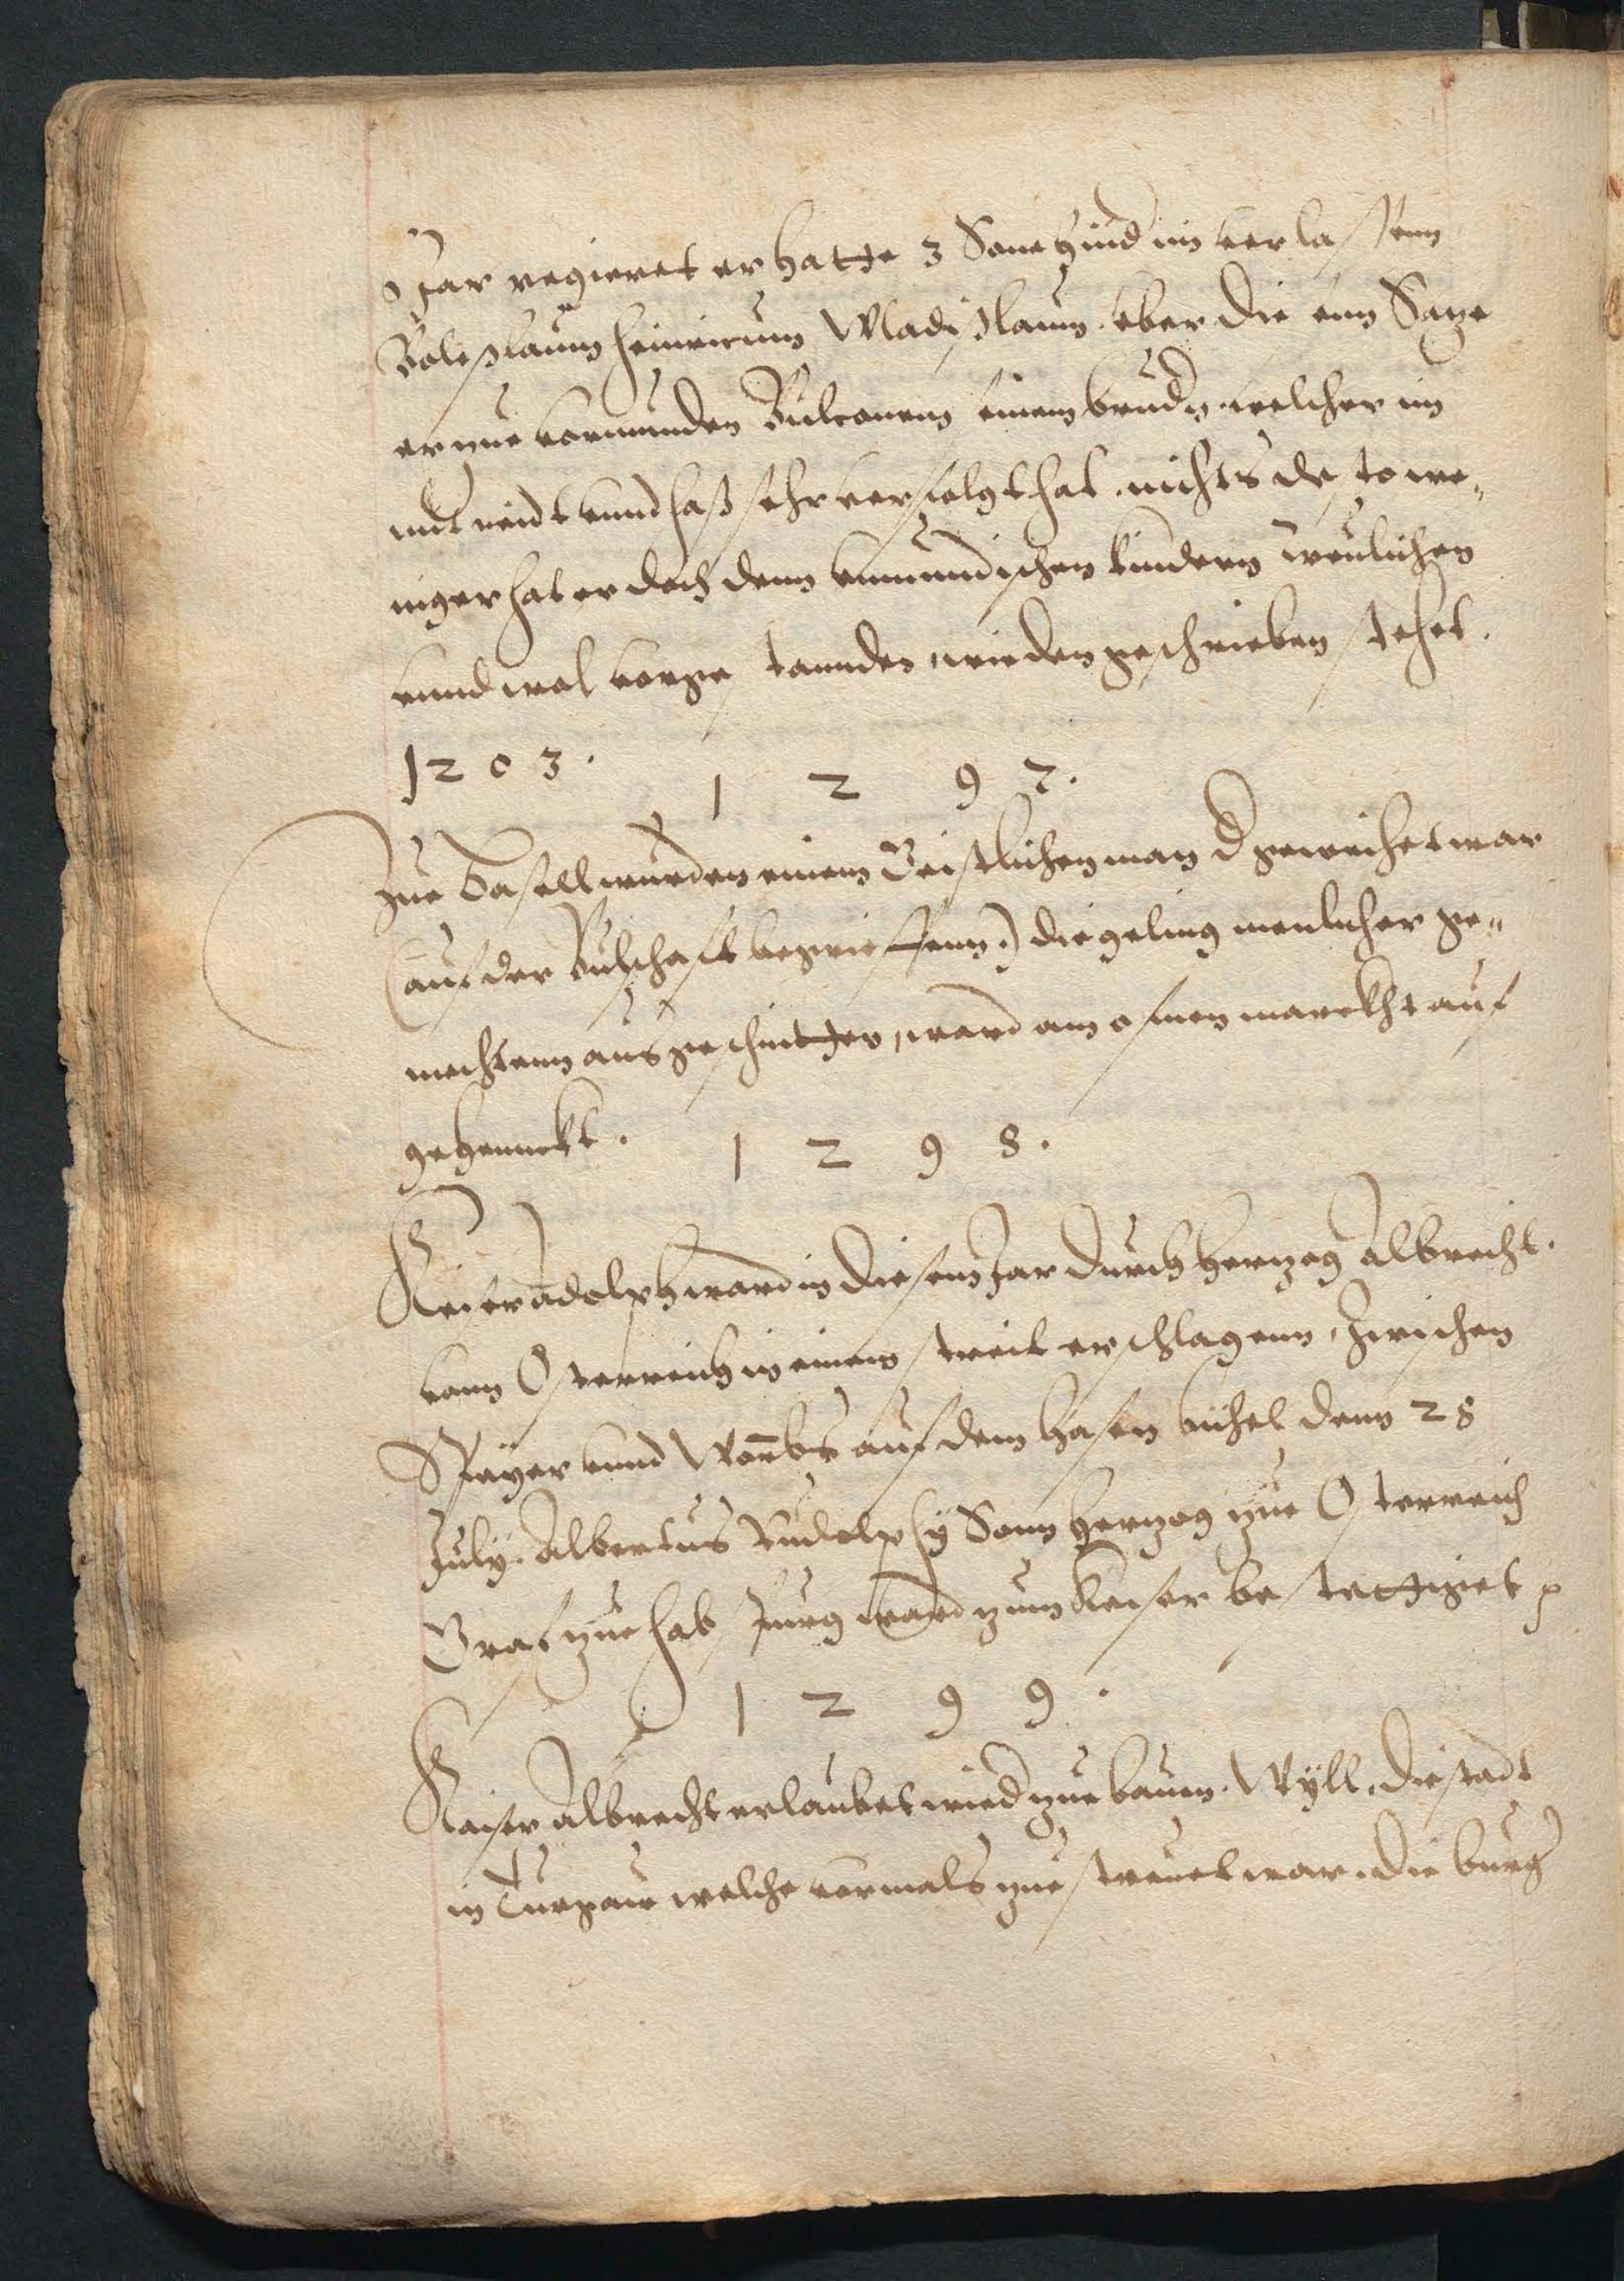 Jar regieret er hatte 3 Sone hind im verlassenn
Boleßlaum heinricum Wladißlaum. vber die ein Satze
er zue vormunden Bulconem seinem brudr. welcher im
mit neidt vnnd haß sehr verfolgt hat. nichts desto we¬
niger hat er doch denn vnmundischen kindern treulichen
vnnd wol vorgestannden, wie den geschrieben stehet.
1203.
1 2 9 7.
Zue Basell wurden einem Geistlichen man d geweihet war
(auf der Bulschaft begriffenn.) die geling menlicher ge¬
mechtenn ausgeschnitten, ward am ofnen marckht auf
gehennckt.
1 2 9 8.
Keiser Adolph ward in diesem Jar durch hertzog Albrecht.
vonn Osterreich in einem streit erschlagenn, zwischen
Speyer vnnd Wormbs auf dem hasen buhel denn 28
July. Albertus Rudolphy Sonn hertzog zue Osterreich
Graf zue habspurg ward zum Keiser bestettiget
1 2 9 9.
Kaiser Albrecht erlaubet wied zue bauen. Wyll. die stadt
in Turgaw welche vormals zuestreuet war. die burg